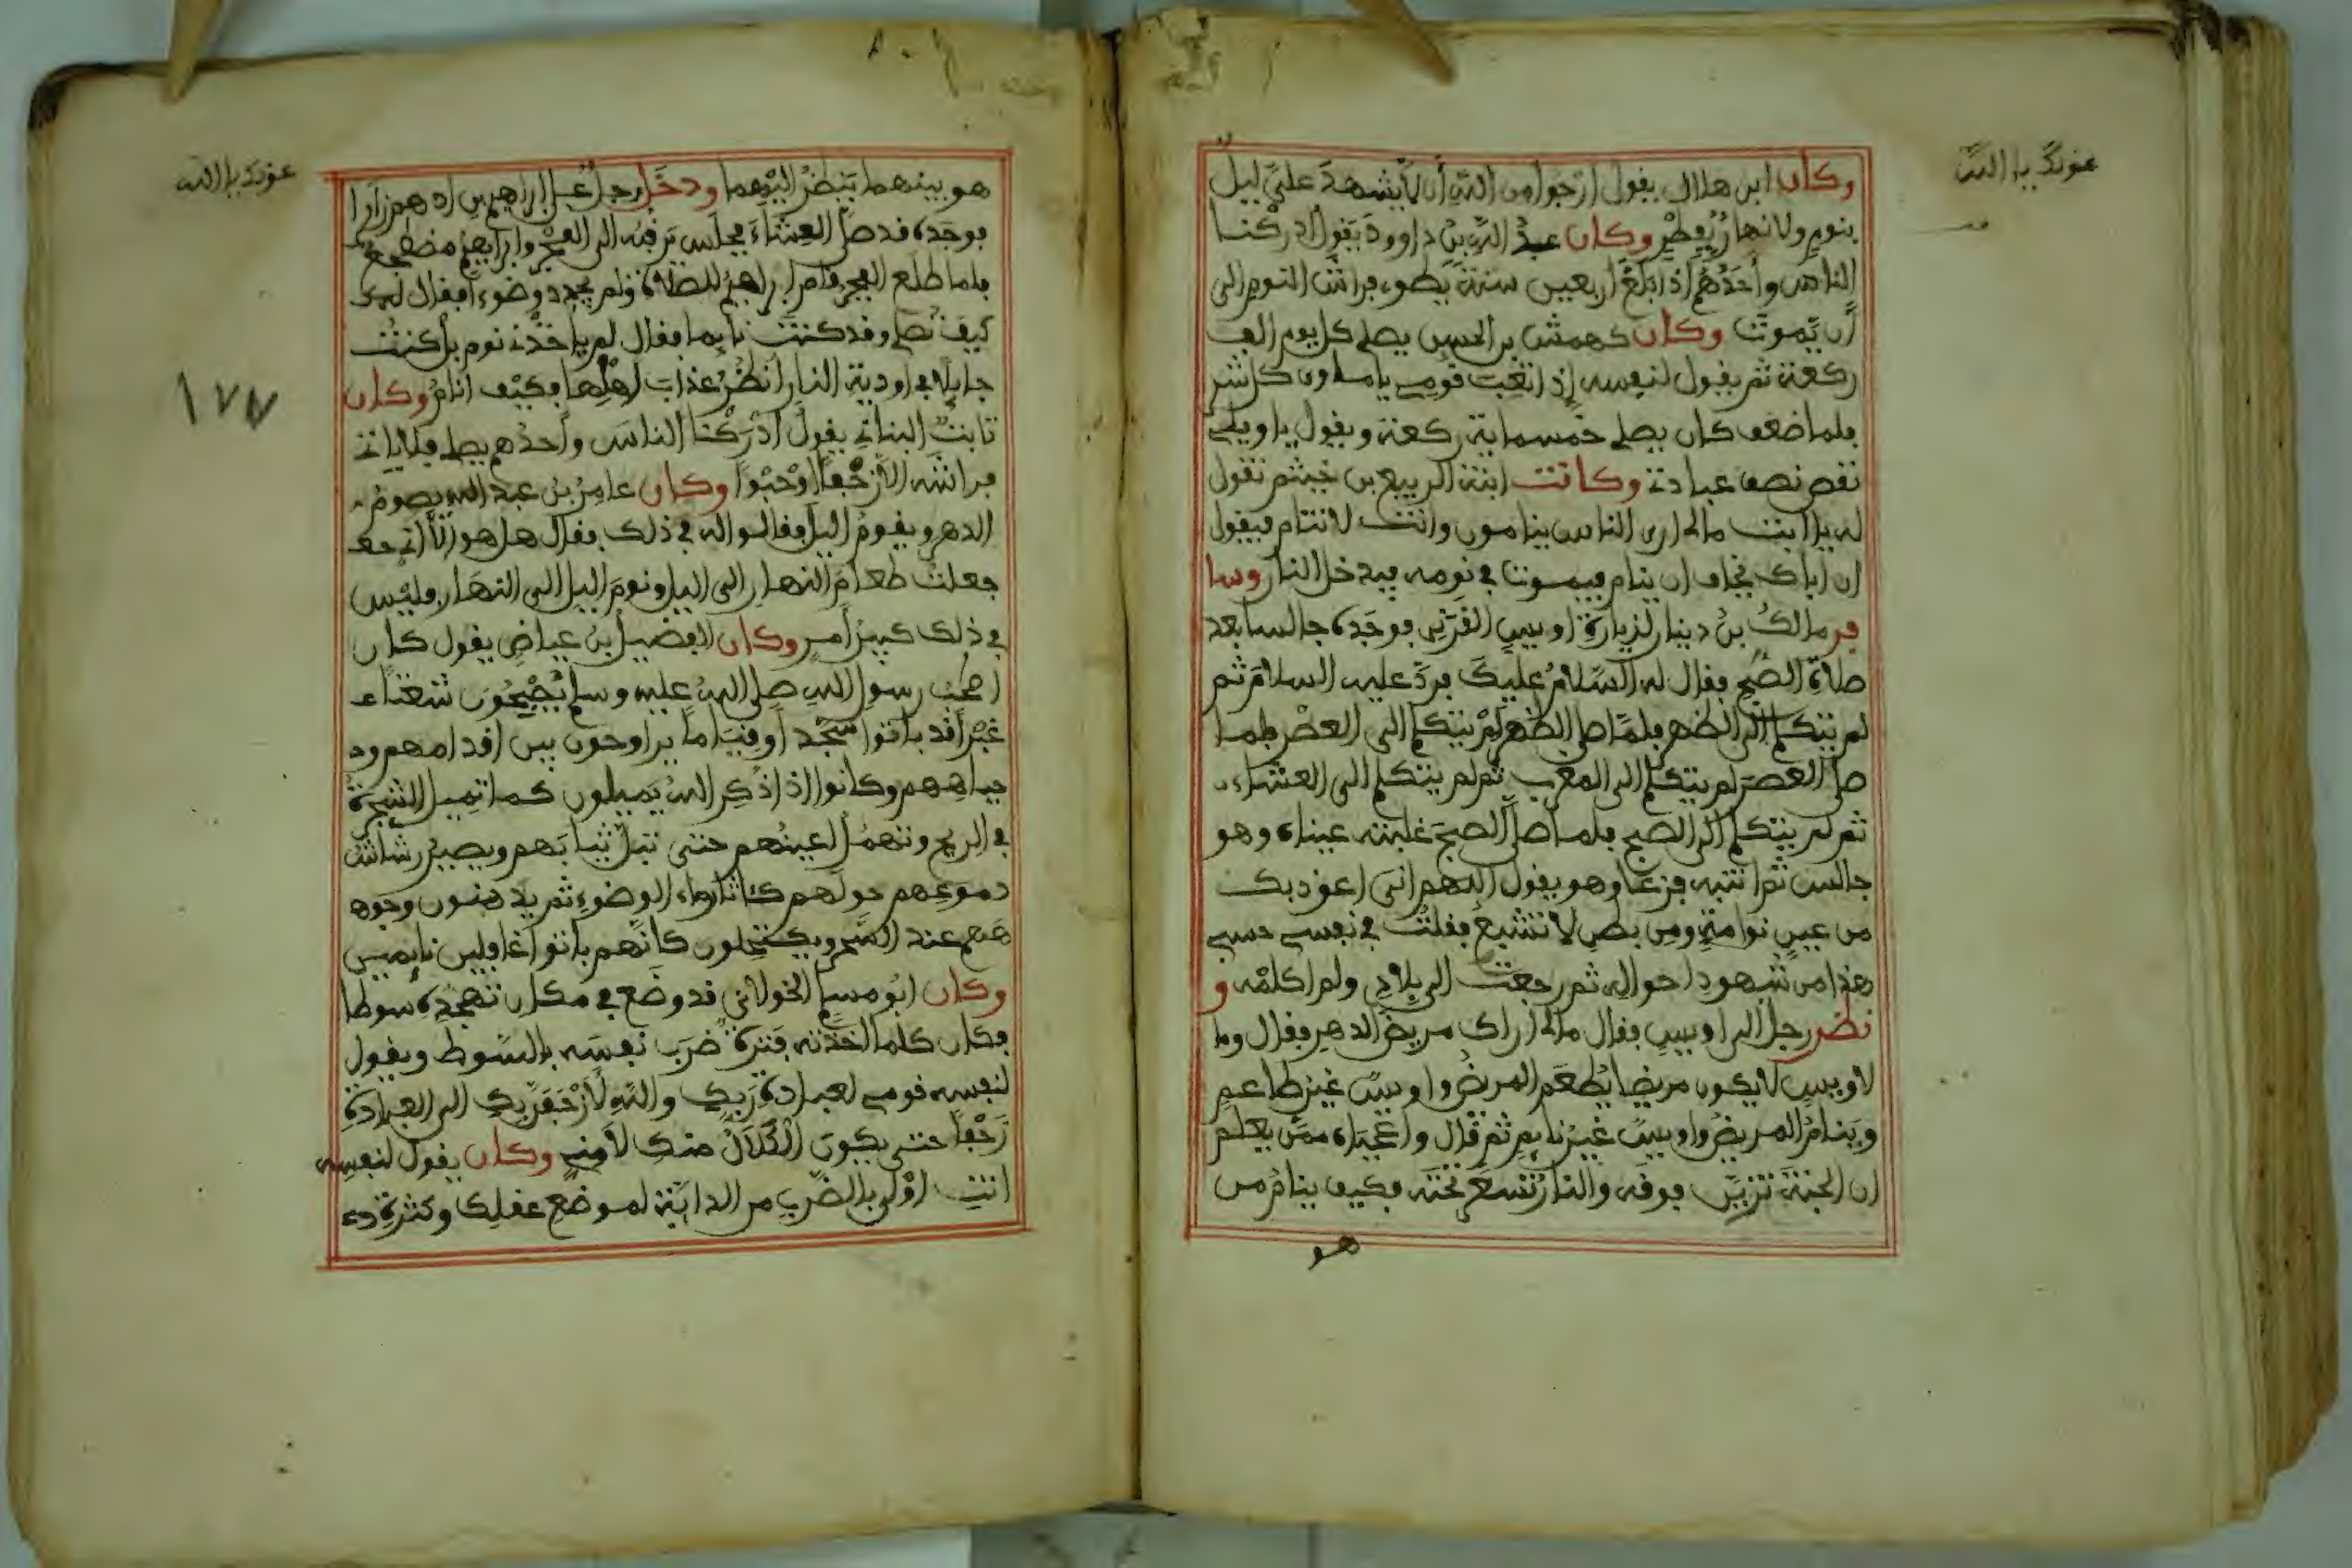 عونك يا الله
وكان ابن هلال يقول ارجوا من الله أن لا يشهد علي ليل
بنوم ولا نهار بفطر وكان عبد الله بن داوود يقول ادركنا
الناس وأحدهم اذا بلغ اربعين سنة يطوي فراش النوم الى
أن يموت وكان كهمش بن الحسن يصلي كل يوم الف
ركعة ثم يقول لنفسه إذا تعبت قومي يا ماوى كل شر
فلما ضعف كان يصلي خمسماية ركعة ويقول يا ويلي
نقص نصف عبادتي وكانت ابنة الربيع بن خيثم تقول
له يا ابت مالي ارى الناس ينامون وانت لا تنام فيقول
ان اباك يخاف ان ينام فيموت في نومه فيدخل النار وسا
فر مالك بن دينار لزيارة اويس القرني فوجده جالسا بعد
صلاة الصبح فقال له السلام عليك فرد عليه السلام ثم
لم يتكلم الى الظهر فلما صلى الظهر لم يتكلم الى العصر فلما
صلى العصر لم يتكلم الى المغرب ثم لم يتكلم الى العشاء
ثم لم يتكلم الى الصبح فلما صلى الصبح غلبته عيناه وهو
جالس ثم انتبه فزعا وهو يقول اللهم اني اعوذ بك
من عين نوامة ومن بطن لا تشبع فقلت في نفسي حسبي
هذا من شهود احواله ثم رجعت الى بلادي ولم اكلمه و
نظر رجل الى اويس فقال مالي اراك مريض الدهر فقال وما
لاويس لا يكون مريضا يطعم المريض واويس غير طاعم
وينام المريض واويس غير نايم ثم قال واعجباه ممن يعلم
ان الجنة تزين فوقه والنار تسعر تحته فكيف ينام من
هو
عونك يا الله
هو بينهما ينظر اليهما ودخل رجل على ابراهيم بن ادهم زايرا
فوجده قد صلى العشاء فجلس يرقبه الى الفجر وابراهيم مضطجع
فلما طلع الفجر قام ابراهيم للصلاة ولم يجدد وضوءا فقال له
كيف تصلي وقد كنت نايما فقال لم ياخذني نوم بل كنت
جايلا في اودية النار أنظر عذاب اهلها فكيف انام وكان
١٧٧
ثابت البناني يقول أدركنا الناس وأحدهم يصلي فلا ياتي
فراشه الا زحفا أو حبوا وكان عامر بن عبد الله يصوم
الدهر ويقوم الليل فقالوا له في ذلك فقال هل هو إلا أني
جعلت طعام النهار الى الليل ونوم الليل الى النهار وليس
في ذلك كبير أمر وكان الفضيل بن عياض يقول كان
اصحاب رسول الله صلى الله عليه وسلم يصبحون شعثاء
غبرا قد باتوا سجدا أو قياما يراوحون بين اقدامهم و
جباههم وكانوا اذا ذكر الله يميلون كما تميل الشجرة
في الريح وتهمل اعينهم حتى تبل ثيابهم ويصير رشاش
دموعهم حولهم كاثار ماء الوضوء ثم يدهنون وجوه
هم عند السحر ويكتحلون كانهم باتوا غافلين نايمين
وكان ابو مسلم الخولاني قد وضع في مكان تهجده سوطا
فكان كلما اخذته فترة ضرب نفسه بالسوط ويقول
لنفسه قومي لعبادة ربك والله لأزحفن بك الى العبادة
زحفا حتى يكون الكلال منك لا مني وكان يقول لنفسه
انت اولى بالضرب من الدابة لموضع عقلك وكثرة